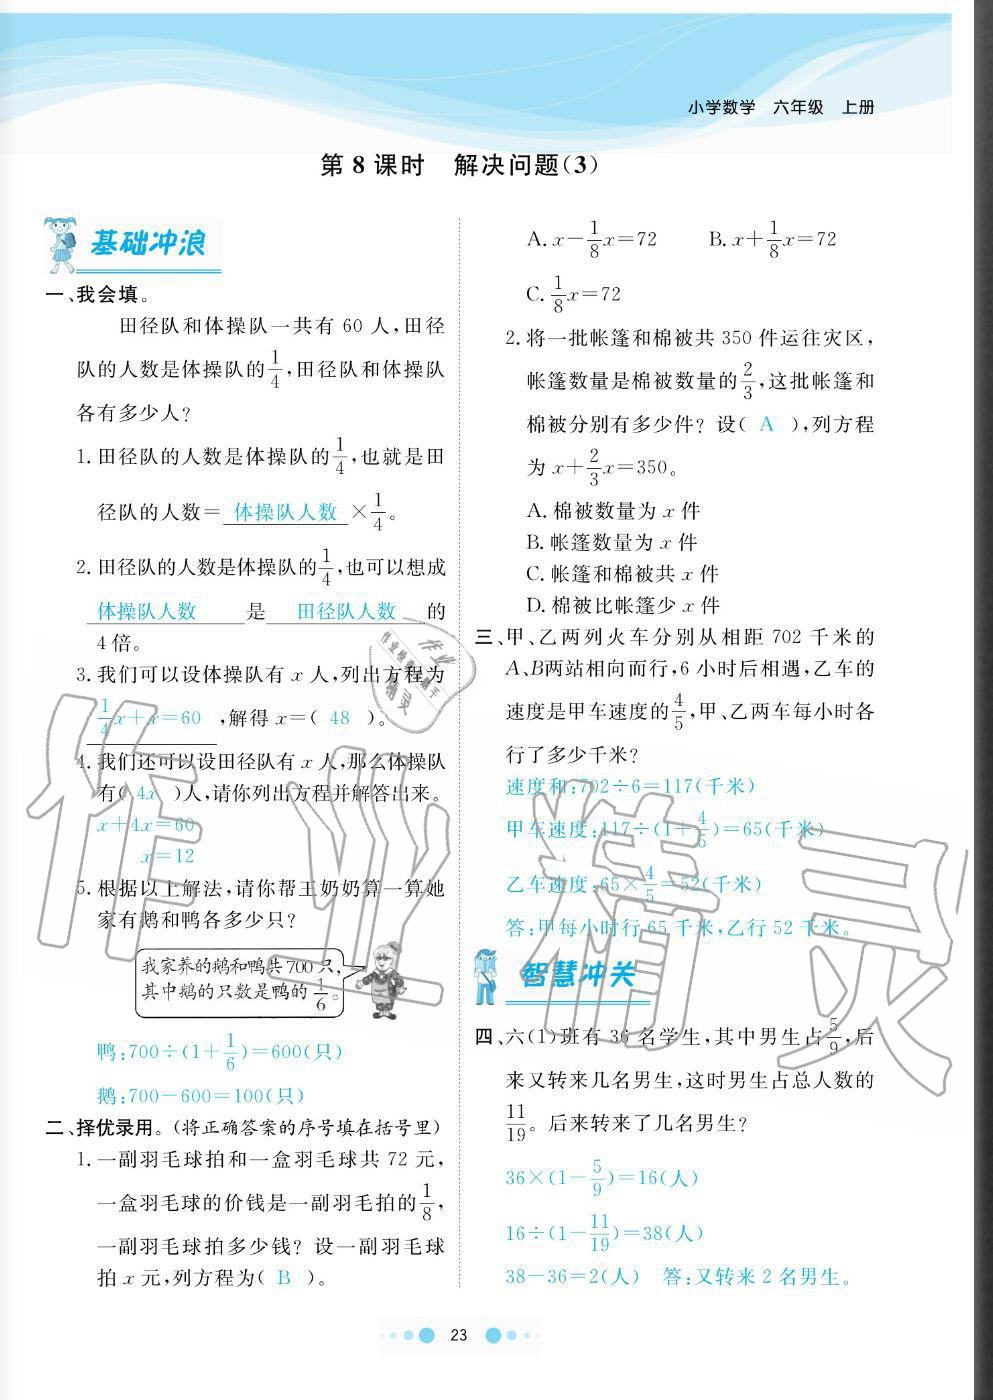 小学数学 六年级 上册
第 8 课时 解决问题(3)
基础冲浪
一、我会填。
田径队和体操队一共有 60 人,田径
队的人数是体操队的1/4,田径队和体操队
各有多少人?
1. 田径队的人数是体操队的1/4,也就是田
径队的人数=体操队人数×1/4。
2. 田径队的人数是体操队的1/4,也可以想成
体操队人数 是 田径队人数 的
4 倍。
3. 我们可以设体操队有 x 人,列出方程为
1/4x+x=60,解得 x=( 48 )。
4. 我们还可以设田径队有 x 人,那么体操队
有( 4x )人,请你列出方程并解答出来。
x+4x=60
x=12
5. 根据以上解法,请你帮王奶奶算一算她
家有鹅和鸭各多少只?
我家养的鹅和鸭共700只,
其中鹅的只数是鸭的1/6。
鸭:700÷(1+1/6)=600(只)
鹅:700-600=100(只)
二、择优录用。(将正确答案的序号填在括号里)
1. 一副羽毛球拍和一盒羽毛球共 72 元,
一盒羽毛球的价钱是一副羽毛拍的1/8,
一副羽毛球拍多少钱? 设一副羽毛球
拍 x 元,列方程为( B )。
A. x-1/8x=72 B. x+1/8x=72
C. 1/8x=72
2. 将一批帐篷和棉被共 350 件运往灾区,
帐篷数量是棉被数量的2/3,这批帐篷和
棉被分别有多少件? 设( A ),列方程
为 x+2/3x=350。
A. 棉被数量为 x 件
B. 帐篷数量为 x 件
C. 帐篷和棉被共 x 件
D. 棉被比帐篷少 x 件
三、甲、乙两列火车分别从相距 702 千米的
A、B两站相向而行,6 小时后相遇,乙车的
速度是甲车速度的4/5,甲、乙两车每小时各
行了多少千米?
速度和:702÷6=117(千米)
甲车速度:117÷(1+4/5)=65(千米)
乙车速度:65×4/5=52(千米)
答:甲每小时行 65 千米,乙行 52 千米。
智慧冲关
四、六(1)班有 36 名学生,其中男生占5/9,后
来又转来几名男生,这时男生占总人数的
11/19。后来转来了几名男生?
36×(1-5/9)=16(人)
16÷(1-11/19)=38(人)
38-36=2(人) 答:又转来 2 名男生。
23
作业精灵